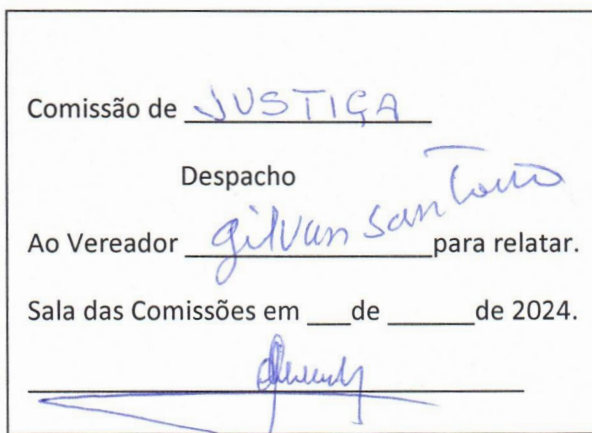 Comissão de JUSTIÇA
Despacho
Ao Vereador Gilvan Santoro para relatar.
Sala das Comissões em ___de ______de 2024.